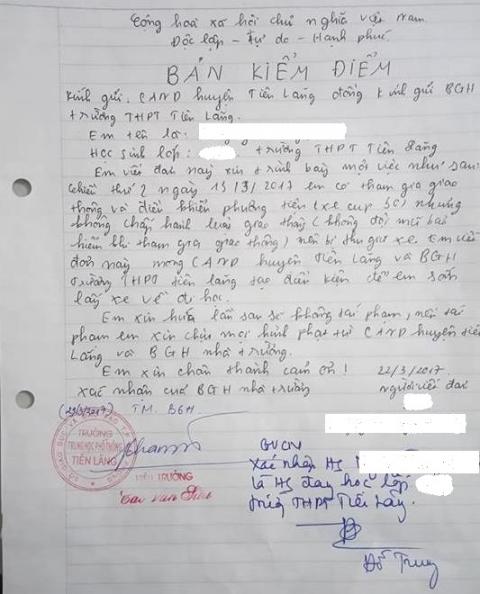 Cộng hoà xã hội chủ nghĩa việt Nam
Độc lập - Tự do - Hạnh phúc
BẢN KIỂM ĐIỂM
Kính gửi: CAND huyện Tiên Lãng đồng kính gửi BGH
trường THPT Tiên Lãng.
Em tên là:
Học sinh lớp: trường THPT Tiên Lãng
Em viết đơn này xin trình bày một việc như sau:
chiều thứ 2 ngày 13/3/2017 em có tham gia giao
thông và điều khiển phương tiện (xe cup 50) nhưng
không chấp hành luật giao thông (không đội mũ bảo
hiểm khi tham gia giao thông) nên bị thu giữ xe. Em viết
đơn này mong CAND huyện Tiên Lãng và BGH
Trường THPT tiên lãng tạo điều kiện để em sớm
lấy xe về đi học.
Em xin hứa lần sau sẽ không tái phạm, nếu tái
phạm em xin chịu mọi hình phạt từ CAND huyện tiên
Lãng và BGH nhà trường.
Em xin chân thành cảm ơn! 22/3/2017
xác nhận của BGH nhà trường người viết đơn
(22/3/2017) T.M. BGH
TRƯỜNG
TRUNG HỌC PHỔ THÔNG
TIÊN LÃNG
HIỆU TRƯỞNG
GVCN
Xác nhận HS
là HS đang học lớp
trường THPT Tiên Lãng.